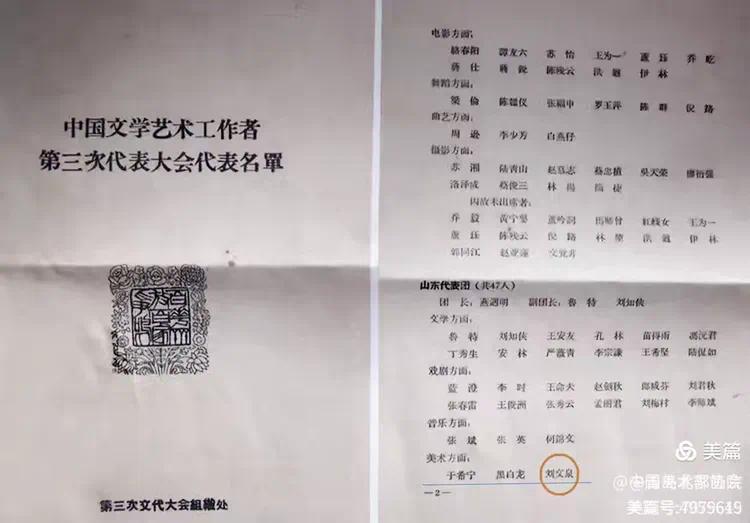 中国文学艺术工作者
第三次代表大会代表名單
百花齐放
第三次文代大会組織处
电影方面:
駱春阳 譚友六 苏怡 王为一 董珏 乔屹
蒋仕 蒋銳 陈残云 洪遒 伊林
舞蹈方面:
梁倫 陈翹仪 张福申 罗玉萍 陈群 倪路
曲艺方面:
周遜 李少芳 白燕仔
摄影方面:
苏湘 陆青山 赵慕志 蔡忠植 吳天荣
洛泽成 蔡俊三 林揚
因故未出席者:
乔毅 黄宁婴 馬师曾 紅綫女 王为一
董珏 陈残云 倪路 林 洪遒 伊林
郭同江
山东代表团(共47人)
团长:燕遇明 副团长:魯特 刘知俠
文学方面:
魯特 刘知俠 王安友 孔林 苗得雨 馮沅君
丁秀生 安林 严薇青 李宗謙 王希坚 陆侃如
戏剧方面:
蓝澄 李时 王命夫 赵剑秋 郎咸芬 刘君秋
张春雷 王俊洲 张秀云 孟丽君 刘梅村 李师斌
音乐方面:
张斌 张英 何錦文
美术方面:
于希宁 黑白龙 刘文泉
—2—
美篇
美篇号:4959649